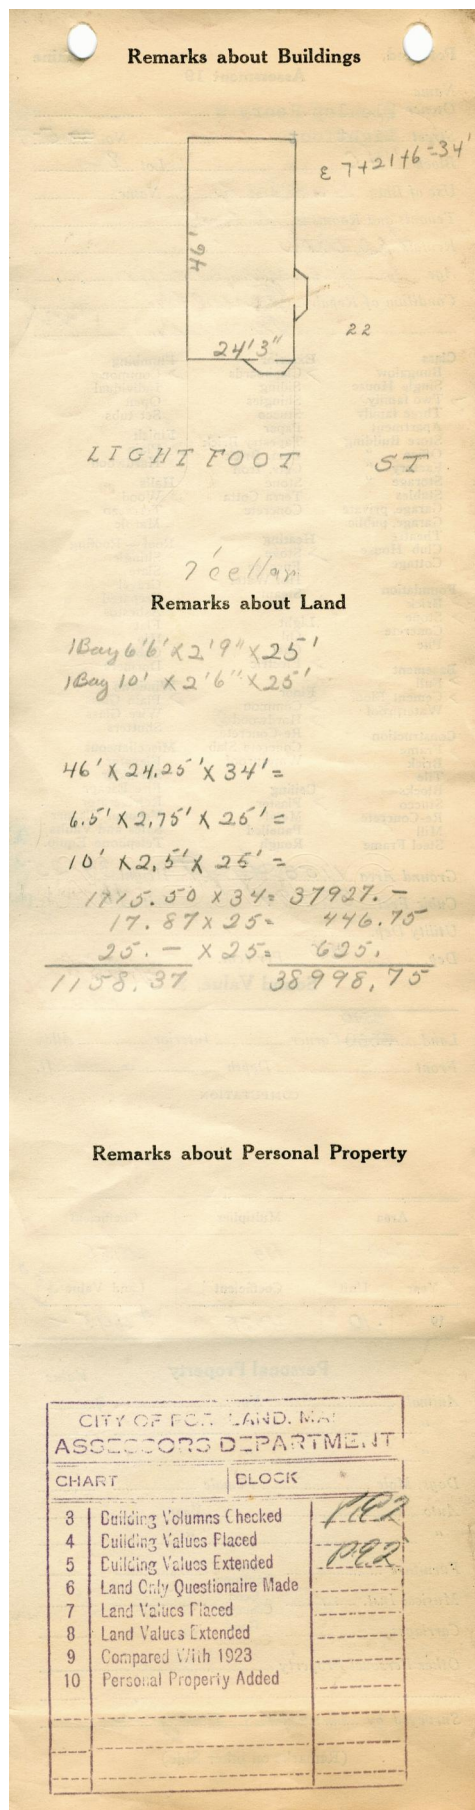 Remarks about Buildings
ε 7+21+6=34'
46'
22
24' 3"
LIGHTFOOT ST
7' cellar
Remarks about Land
1 Bay 6'6' X 2'9" X 25'
1 Bay 10' X 2'6" X 25'
46' X 24.25' X 34' =
6.5' X 2.75' X 25' =
10' X 2.5' X 25' =
1115.50 X 34= 37927.-
17.87 X 25= 446.75
25.- X 25= 625.
1158.37 38998.75
Remarks about Personal Property
CITY OF PORTLAND, MAINE
ASSESSORS DEPARTMENT
CHART BLOCK
3 Building Volumns Checked
4 Building Values Placed
5 Building Values Extended
6 Land Only Questionaire Made
7 Land Values Placed
8 Land Values Extended
9 Compared With 1923
10 Personal Property Added